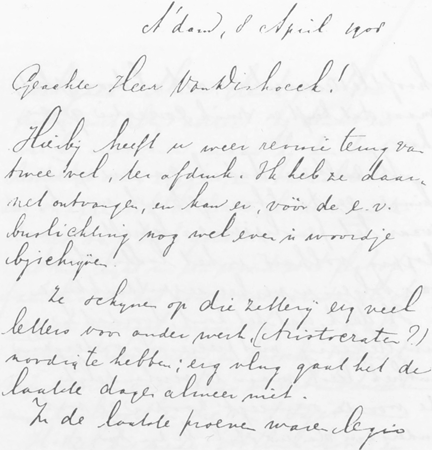 A'dam, 8 April 1908
Geachte Heer Van Dishoeck!
Hierbij heeft u weer revisie terug van
twee vel, ter afdruk. Ik heb ze daar-
net ontvangen, en kan er, vóór de e.v.
buslichting nog wel even 'n woordje
bijschrijven.
Ze schijnen op die zetterij erg veel
letters voor ander werk, (Aristocraten?)
noodig te hebben; erg vlug gaat het de
laatste dagen alweer niet.
In de laatste proeven waren legio